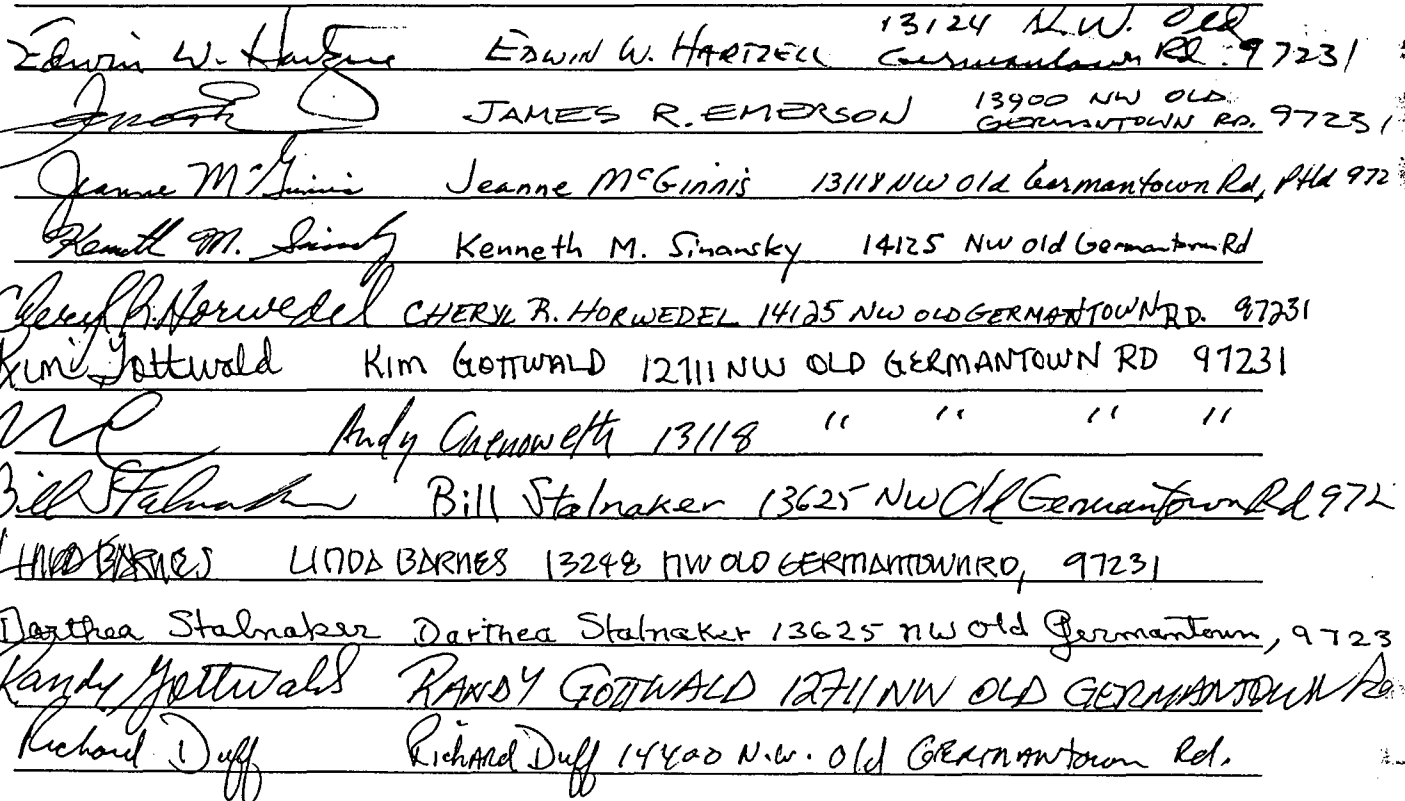 Edwin W. Hartzell EDWIN W. HARTZELL 13124 N.W. Old Germantown Rd. 97231
JAMES R. EMERSON 13900 NW OLD GERMANTOWN RD. 97231
Jeanne McGinnis Jeanne McGinnis 13118 NW Old Germantown Rd, Ptld 972
Kenneth M. Sinansky Kenneth M. Sinansky 14125 NW Old Germantown Rd
Cheryl R. Horwedel CHERYL R. HORWEDEL 14125 NW OLD GERMANTOWN RD. 97231
Kim Gottwald KIM GOTTWALD 12711 NW OLD GERMANTOWN RD 97231
Andy Chenoweth 13118 " " " "
Bill Stalnaker Bill Stalnaker 13625 NW Old Germantown Rd 972
LINDA BARNES LINDA BARNES 13248 NW OLD GERMANTOWN RD, 97231
Darthea Stalnaker Darthea Stalnaker 13625 NW Old Germantown, 9723
Randy Gottwald RANDY GOTTWALD 12711 NW OLD GERMANTOWN Rd
Richard Duff Richard Duff 14400 N.W. Old GERMANTown Rd.